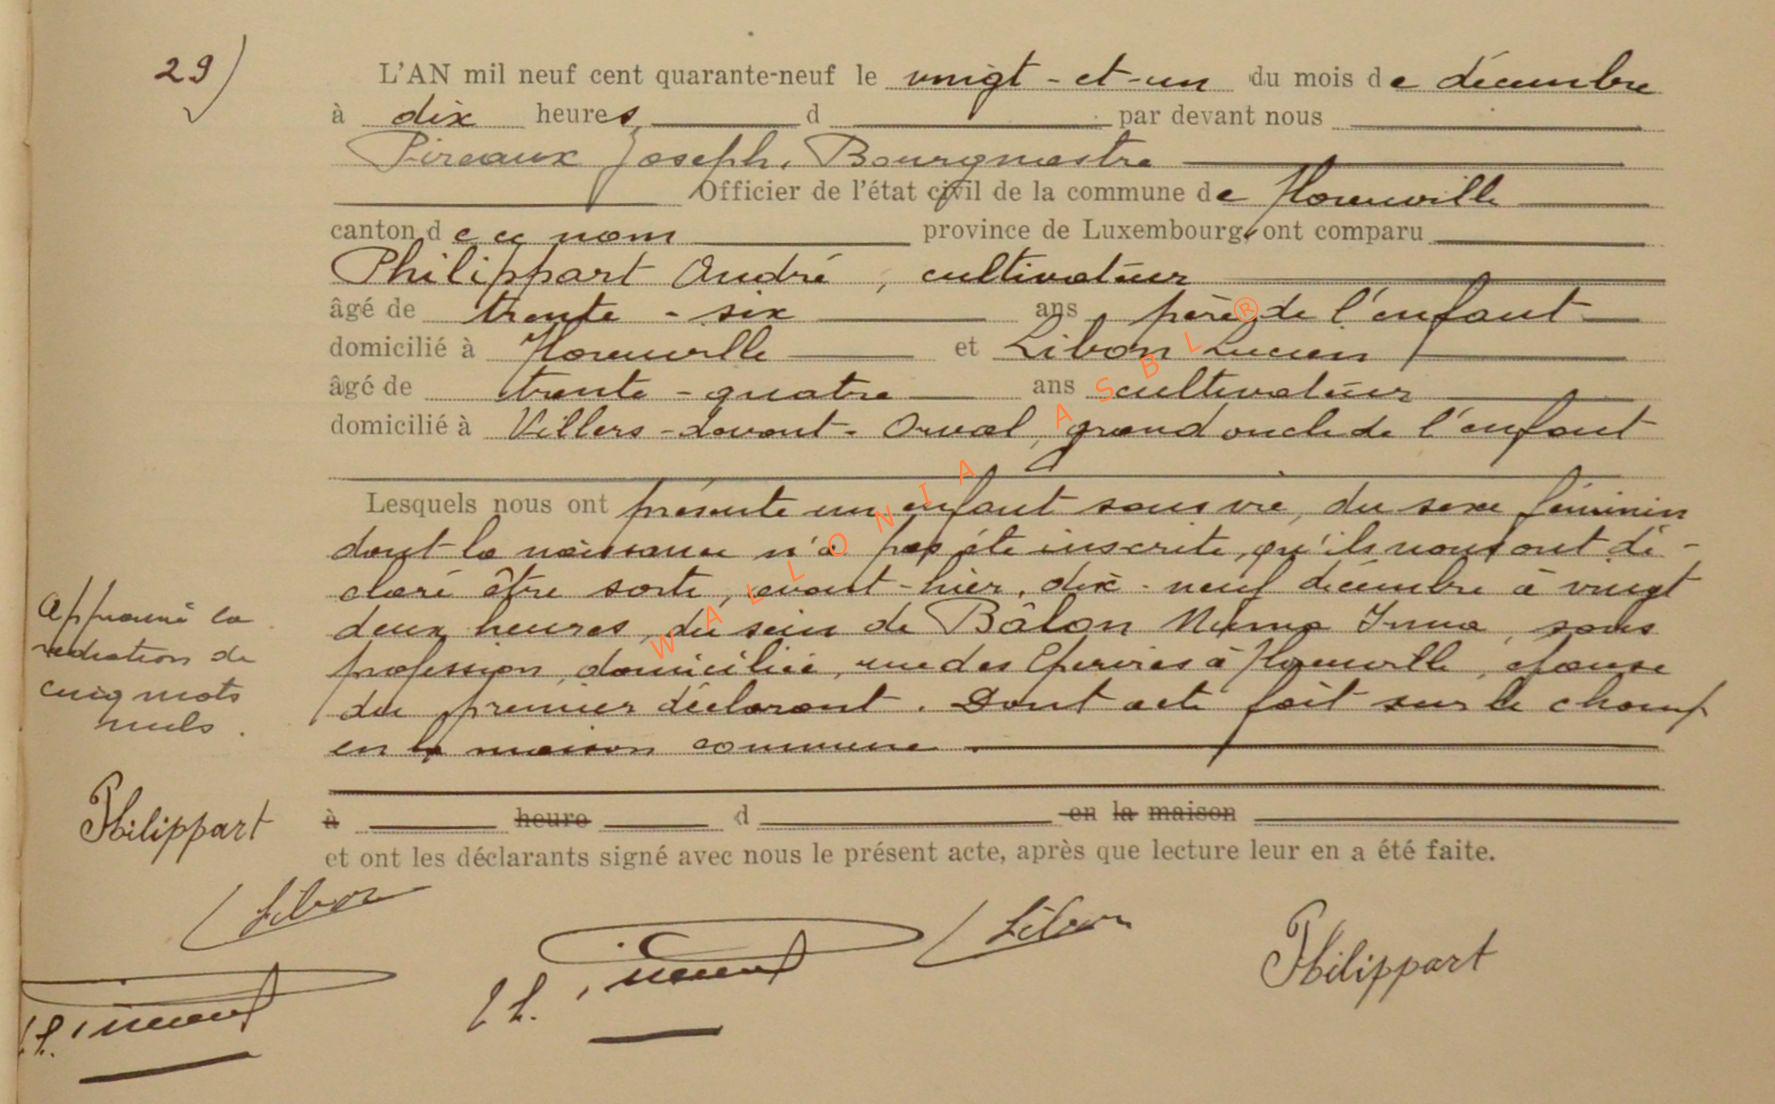 29)
L'AN mil neuf cent quarante-neuf le vingt-et-un du mois de décembre
à dix heures d par devant nous
Pireaux Joseph, Bourgmestre
Officier de l'état civil de la commune de Florenville
canton de ce nom province de Luxembourg, ont comparu
Philippart André, cultivateur
âgé de trente-six ans, père de l'enfant
domicilié à Florenville et Libon Lucien
âgé de trente-quatre ans cultivateur
domicilié à Villers-devant-Orval, grand oncle de l'enfant
Lesquels nous ont présenté un enfant sans vie, du sexe féminin
dont la naissance n'a pas été inscrite, qu'ils nous ont dé-
claré être sorti, avant-hier, dix-neuf décembre à vingt
deux heures, du sein de Bâlon Numa Irma, sans
profession, domiciliée, rue des Eperires à Florenville, épouse
du premier déclarant. Dont acte fait sur le champ
en la maison commune.
à heure d en la maison
et ont les déclarants signé avec nous le présent acte, après que lecture leur en a été faite.
Approuvé la
radiation de
cinq mots
nuls.
Philippart
Libon
Libon
Philippart
WALLONIA ASBL ®